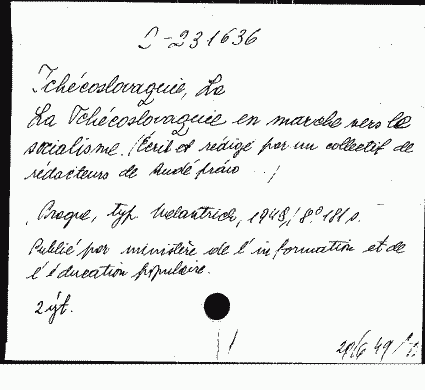 D-231636
Tchécoslovaquie, La
La Tchécoslovaquie en marche vers le
socialisme. (Écrit et rédigé par un collectif de
rédacteurs de Rudé právo
Prague, typ. Melantrich, 1949, 8° 181 s.
Publié par ministère de l'information et de
l'éducation populaire.
2 výt.